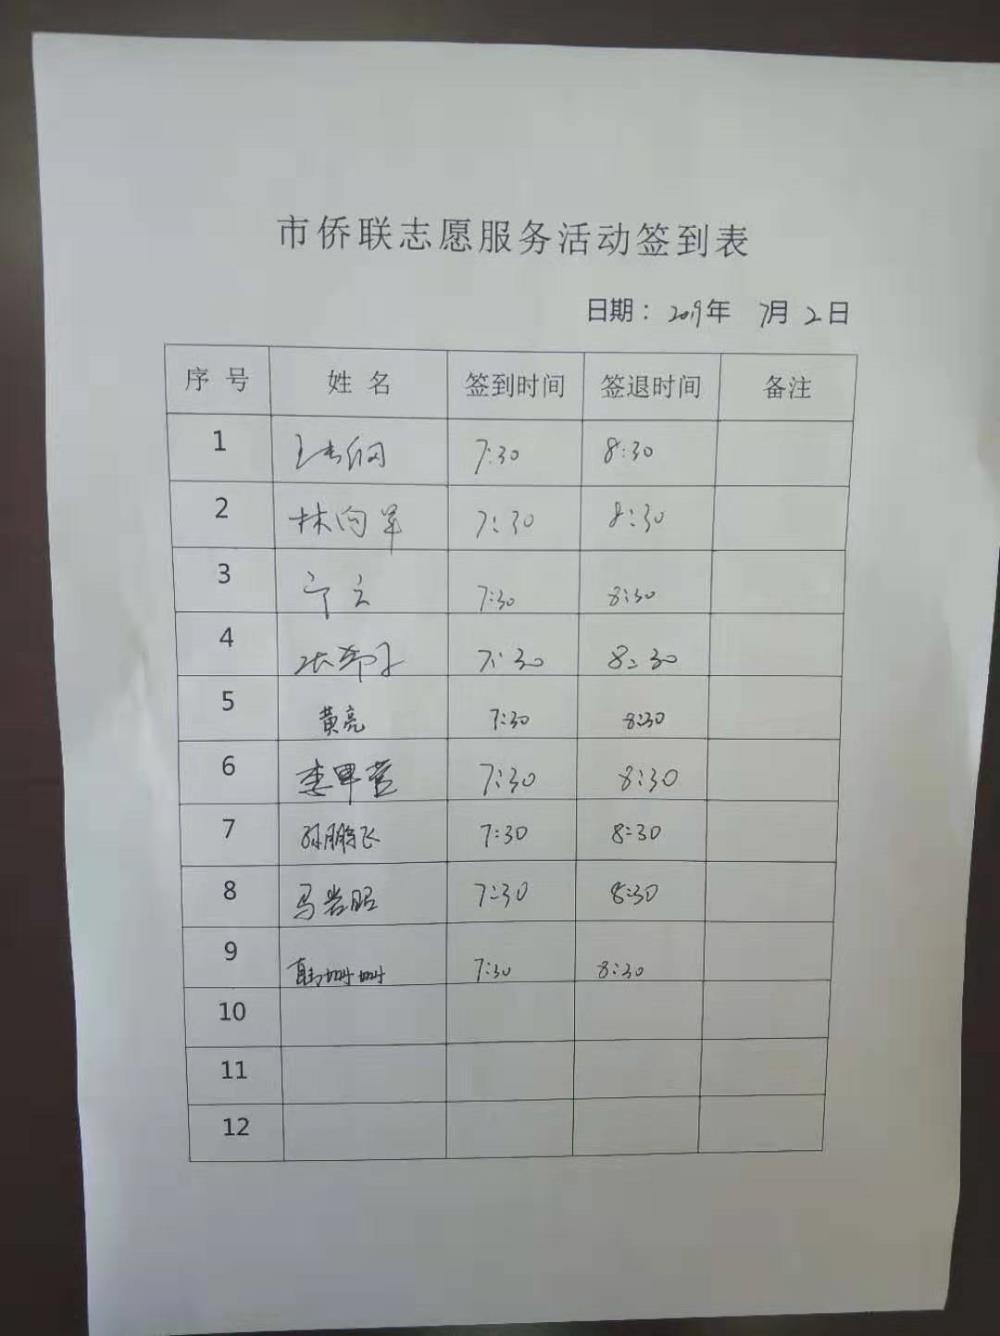 市侨联志愿服务活动签到表
日期：2019年 7月2日
序号 姓名 签到时间 签退时间 备注
1 7:30 8:30
2 林向军 7:30 8:30
3 宁立 7:30 8:30
4 7:30 8:30
5 黄亮 7:30 8:30
6 李甲营 7:30 8:30
7 孙鹏飞 7:30 8:30
8 马岩昭 7:30 8:30
9 韩姗姗 7:30 8:30
10
11
12